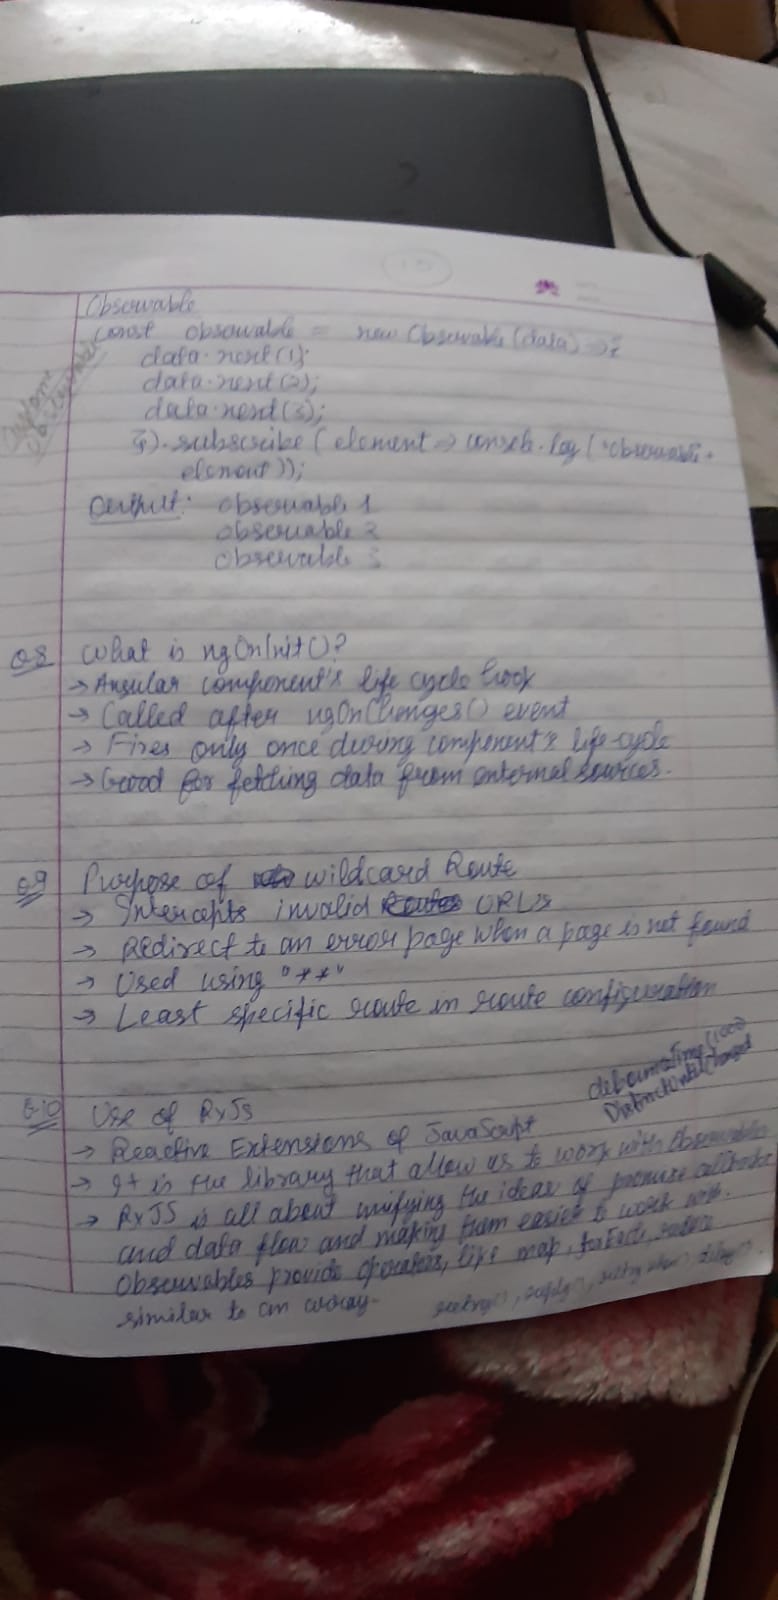 15
Observable
const observable = new Observable(data) => {
data.next(1);
data.next(2);
data.next(3);
}).subscribe(element => console.log('Observable' +
element));
Output: observable 1
observable 2
observable 3
Q8 What is ngOnInit()?
→ Angular component's life cycle hook
→ Called after ngOnChanges() event
→ Fires only once during component's life-cycle
→ Good for fetching data from external sources.
Q9 Purpose of wildcard Route
→ Intercepts invalid URL's
→ Redirect to an error page when a page is not found
→ Used using "**"
→ Least specific route in route configuration
debounceTime(1000)
DistinctUntilChanged
Q.10 Use of RxJS
→ Reactive Extensions of JavaScript
→ It is the library that allow us to work with Observables
→ RxJS is all about unifying the ideas of promise callbacks
and data flow and making them easier to work with.
Observables provide operators, like map, forEach, reduce
similar to an array. retry(), reply(), retrywhen, delay()